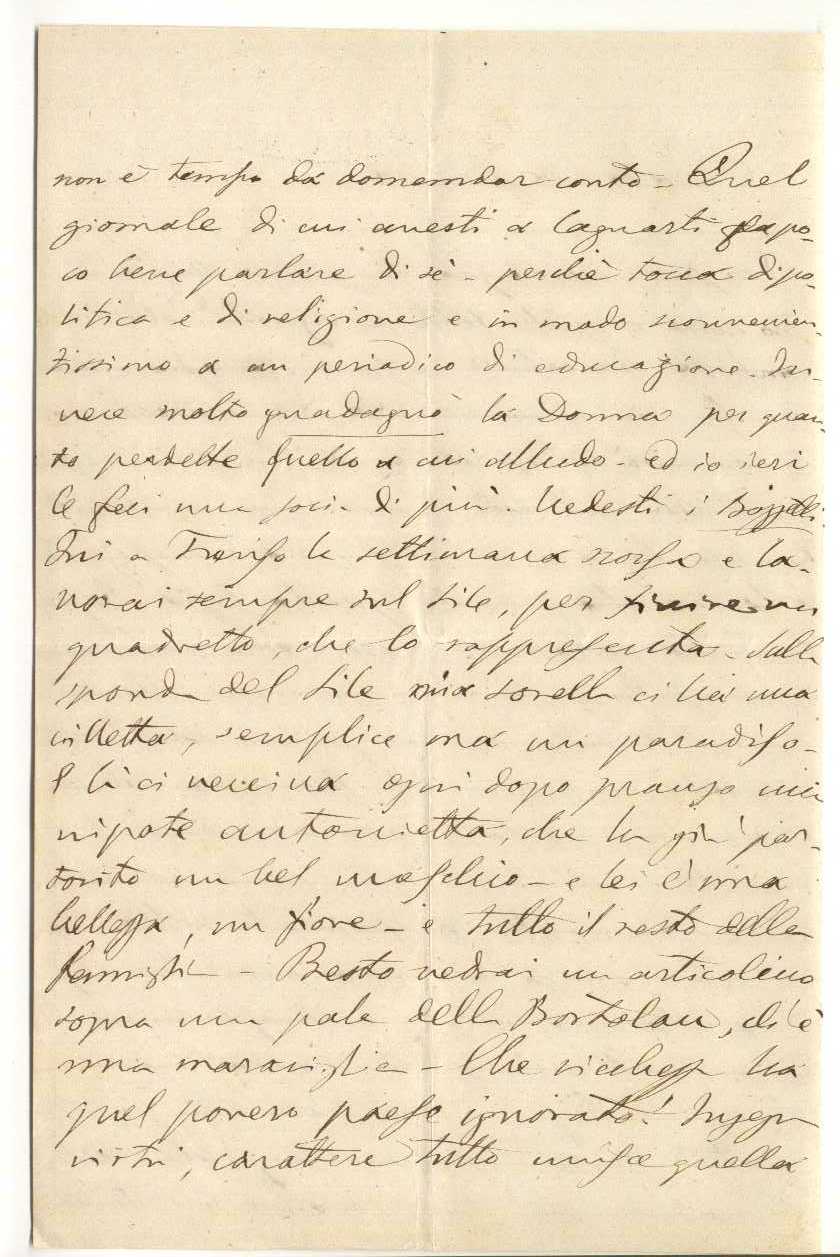 non è tempo da domandar conto - Quel
giornale di cui avesti a lagnarti fa po-
co bene parlare di sè - perchè tocca di po-
litica e di religione e in modo sconvenien-
tissimo a un periodico di educazione. In-
vece molto guadagnò la Donna per quan-
to perdette quello a cui alludo - ed io ieri
le feci una socia di più. Vedesti i
Fui a Treviso la settimana scorsa e la-
vorai sempre sul Sile, per finire un
quadretto, che lo rappresenta. Sulla
sponda del Sile mia sorella ci ha una
villetta, semplice ma un paradiso -
E lì ci veniva ogni dopo pranzo mia
nipote Antonietta, che ha già par-
torito un bel maschio - e lei è una
bellezza, un fiore - e tutto il resto della
famiglia - Presto vedrai un articolino
sopra una pala della Bortolan, ch'è
una maraviglia - Che ricchezza ha
quel povero paese ignorato! Ingegn
virtù, carattere tutto unisce quella